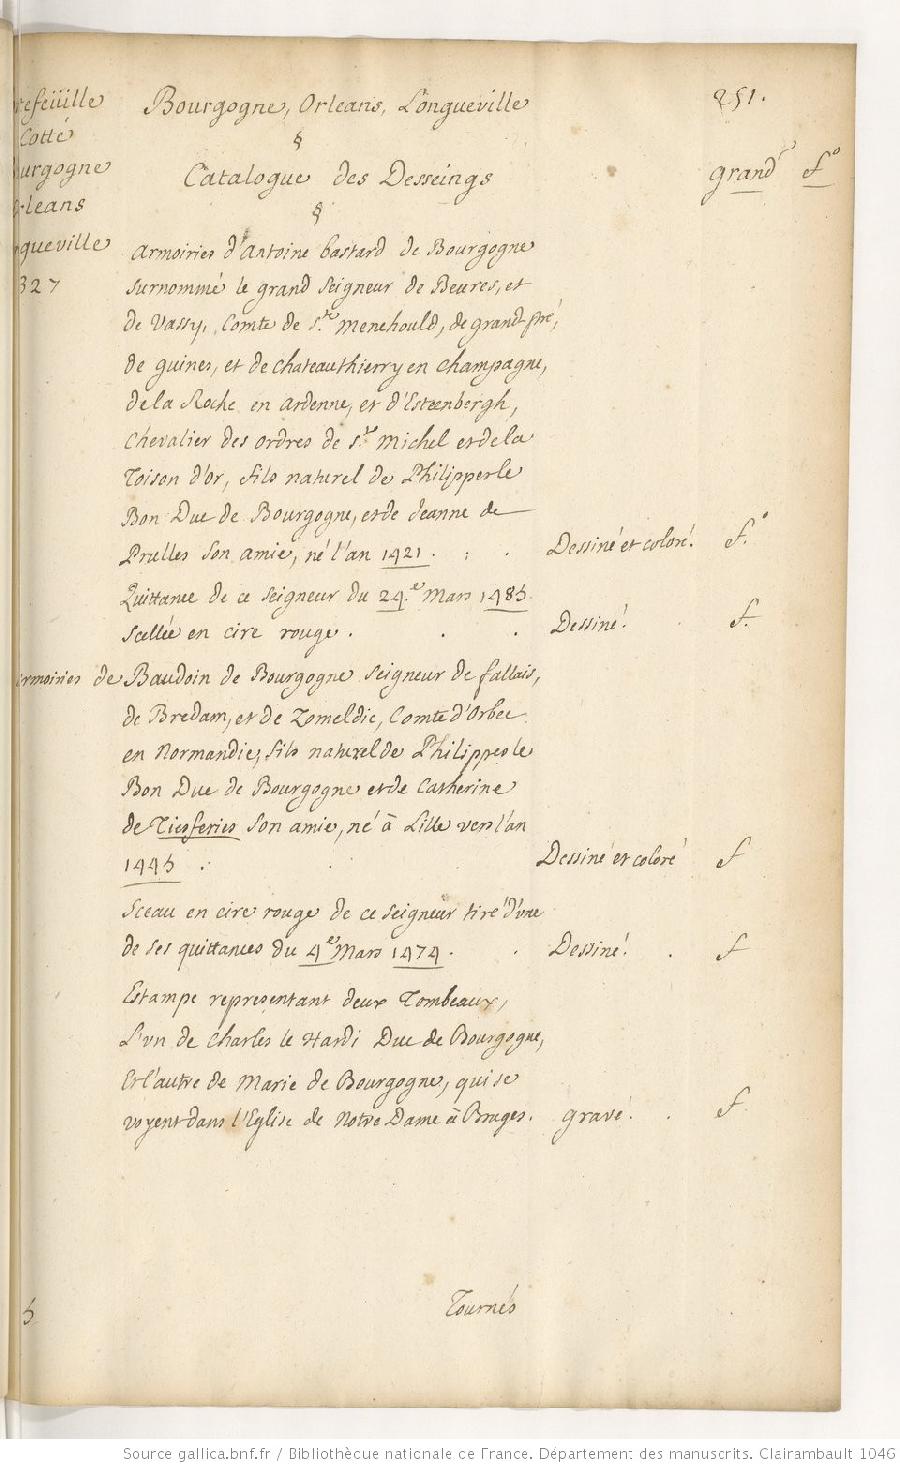 refeüille
Cotté
urgogne
rleans
gueville
327
Bourgogne, Orleans, Longueville
251.
§
Catalogue des Desseings
grand fo
§
Armoiries d'Antoine bastard de Bourgogne
surnommé le grand seigneur de Beures, et
de Vassy, Comte de Ste Menehould, de grand pré,
de guines, et de chateauthierry en champagne,
de la Roche en ardenne, et d'Esteenbergh,
Chevalier des ordres de St Michel et de la
Toison d'or, fils naturel de Philippes le
Bon Duc de Bourgogne, et de Jeanne de
Prulles son amie, né l'an 1421 . : . Dessiné et coloré. f.o
Quittance de ce seigneur du 24.e Mars 1485.
scellée en cire rouge . . . Dessiné. . f.
rmoiries de Baudoin de Bourgogne seigneur de fallais,
de Bredam, et de Zomeldic, Comte d'Orbec
en Normandie, fils naturel de Philippes le
Bon Duc de Bourgogne et de Catherine
de Tiesferies son amie, né à Lille vers l'an
1445 . Dessiné et coloré f
Sceau en cire rouge de ce seigneur tiré d'une
de ses quittances du 4e Mars 1474 . . Dessiné. . f
Estampe representant deux Tombeaux,
L'vn de Charles le Hardi Duc de Bourgogne,
Et l'autre de Marie de Bourgogne, qui se
voyent dans l'Eglise de Notre Dame à Bruges. gravé. . f.
Tournés
Source gallica.bnf.fr / Bibliothèque nationale de France. Département des manuscrits. Clairambault 1046